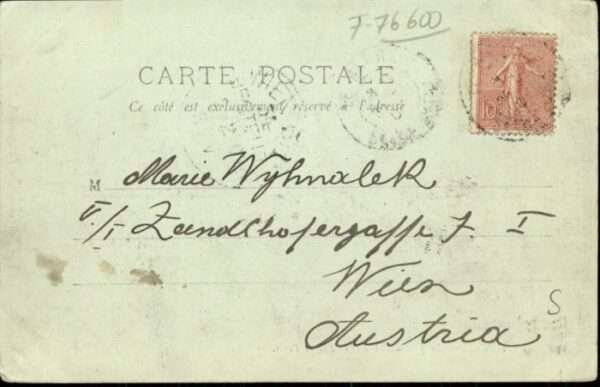 7-76600
CARTE POSTALE
Ce côté est exclusivement réservé à l'adresse
M Marie Wyhnalek
V/I Zeundlhofergasse 7. I
Wien
Austria
S
10